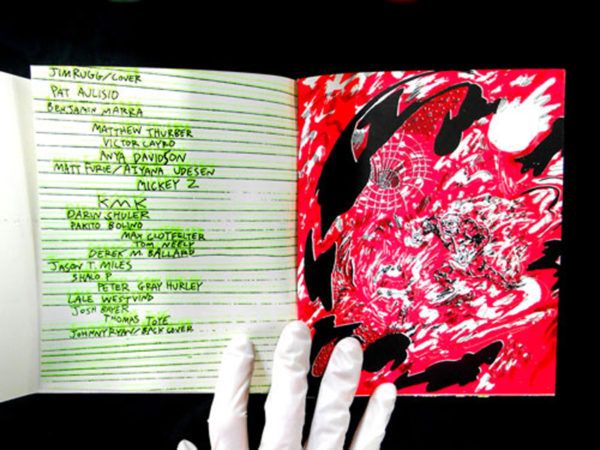 JIM RUGG/COVER
PAT AULISIO
BENJAMIN MARRA
MATTHEW THURBER
VICTOR CAYRO
ANYA DAVIDSON
MATT FURIE/AIYANA UDESEN
MICKEY Z
KMK
DARIN SHULER
PAKITO BOLINO
MAX CLOTFELTER
TOM NEELY
DEREK M. BALLARD
JASON T. MILES
SHALO P
PETER GRAY HURLEY
LALE WESTVIND
JOSH BAYER
THOMAS TOYE
JOHNNY RYAN/BACK COVER